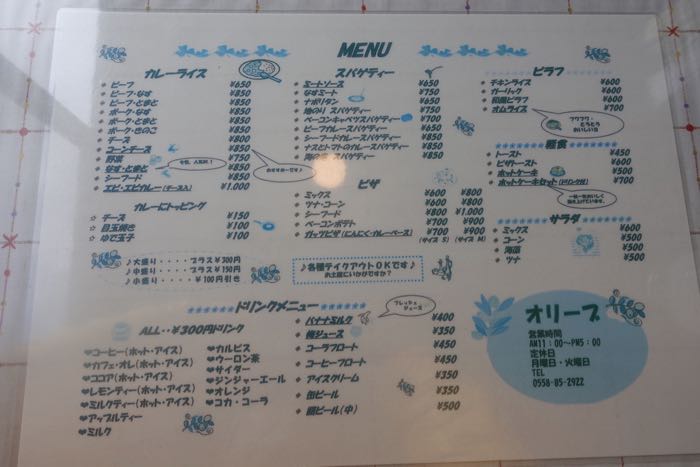 MENU
カレーライス
ビーフ ¥650
ビーフ・なす ¥850
ビーフ・とまと ¥850
ポーク・なす ¥850
ポーク・とまと ¥850
ポーク・きのこ ¥850
チーズ ¥800
コーンチーズ ¥850
野菜 ¥750
なす・とまと ¥850
シーフード ¥850
エビ・エビカレー(チーズ入) ¥1.000
今旬、人気No.1
おすすめーです♪
カレーにトッピング
☆ チーズ ¥150
☆ 目玉焼き ¥100
☆ ゆで玉子 ¥100
♪大盛り・・・・プラス¥300円
♪中盛り・・・・プラス¥150円
♪小盛り・・・・¥100円引き
スパゲティー
ミートソース ¥650
なすミート ¥750
ナポリタン ¥650
地のり スパゲティー ¥750
ベーコンキャベツスパゲティー ¥700
ビーフカレースパゲティー ¥850
シーフードカレースパゲティー ¥850
ナスとトマトのカレースパゲティー ¥850
スパゲティー ¥850
ピザ
ミックス ¥600 ¥800
ツナ・コーン ¥600 ¥800
シーフード ¥800 ¥1.000
ベーコンポテト ¥700 ¥900
ガッツピザ(にんにく・カレーベース) ¥700 ¥900
(サイズ S) (サイズ M)
♪各種テイクアウトOKです♪
お土産にいかがですか?
ピラフ
チキンライス ¥600
ガーリック ¥600
和風ピラフ ¥600
オムライス ¥700
フワフワ・
とろとろ
おいしい
軽食
トースト ¥450
ピザトースト ¥600
ホットケーキ ¥500
ホットケーキセット(ドリンク付) ¥700
サラダ
ミックス ¥600
コーン ¥500
海藻 ¥500
ツナ ¥500
ドリンクメニュー
ALL・・¥300円ドリンク
❤コーヒー(ホット・アイス)
❤カフェ・オレ(ホット・アイス)
❤ココア(ホット・アイス)
❤レモンティー(ホット・アイス)
❤ミルクティー(ホット・アイス)
❤アップルティー
❤ミルク
❤カルピス
❤ウーロン茶
❤サイダー
❤ジンジャーエール
❤オレンジ
❤コカ・コーラ
フレッシュ
ジュース
バナナミルク ¥400
梅ジュース ¥350
コーラフロート ¥450
コーヒーフロート ¥450
アイスクリーム ¥350
缶ビール ¥350
瓶ビール(中) ¥500
オリーブ
営業時間
AM11:00〜PM5:00
定休日
月曜日・火曜日
TEL
0558-85-2922